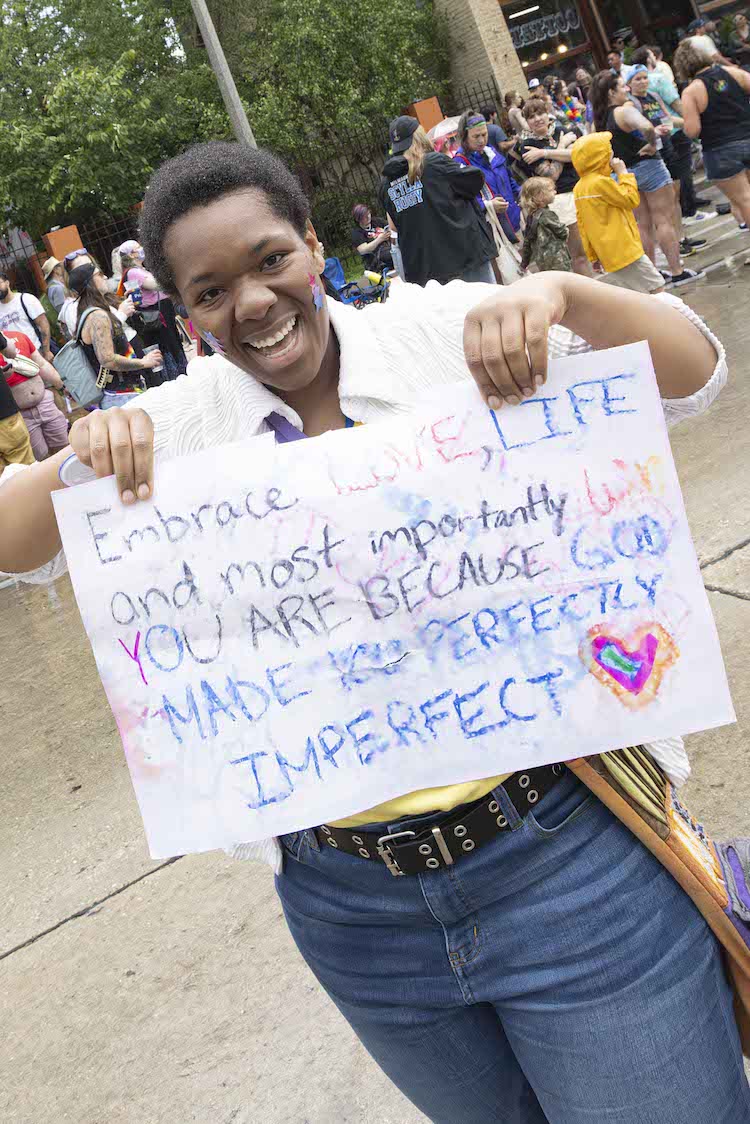 TATTOO
SCYLLA
RUGBY
Embrace LOVE, LIFE
and most importantly
YOU ARE BECAUSE GOD
MADE YOU PERFECTLY
IMPERFECT